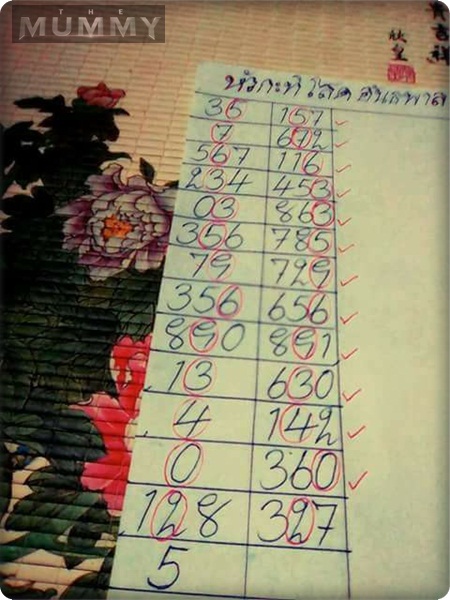 THE
MUMMY
吉祥
หัวกะทิ
35 157
7 672
567 116
234 453
03 863
356 785
79 729
356 656
890 891
13 630
4 142
0 360
128 327
5